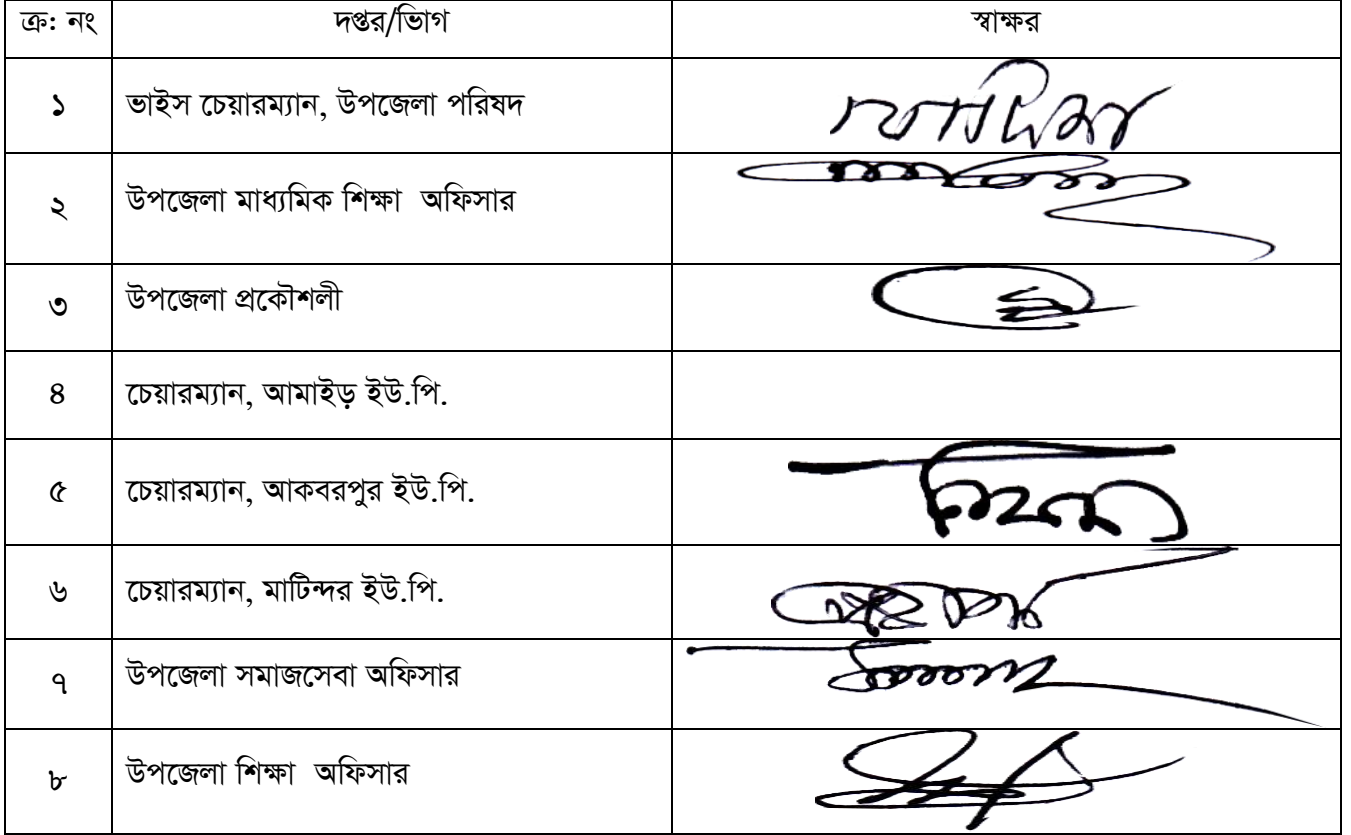 ক্র: নং দপ্তর/ভিাগ স্বাক্ষর
১ ভাইস চেয়ারম্যান, উপজেলা পরিষদ
২ উপজেলা মাধ্যমিক শিক্ষা অফিসার
৩ উপজেলা প্রকৌশলী
৪ চেয়ারম্যান, আমাইড় ইউ.পি.
৫ চেয়ারম্যান, আকবরপুর ইউ.পি.
৬ চেয়ারম্যান, মাটিন্দর ইউ.পি.
৭ উপজেলা সমাজসেবা অফিসার
৮ উপজেলা শিক্ষা অফিসার